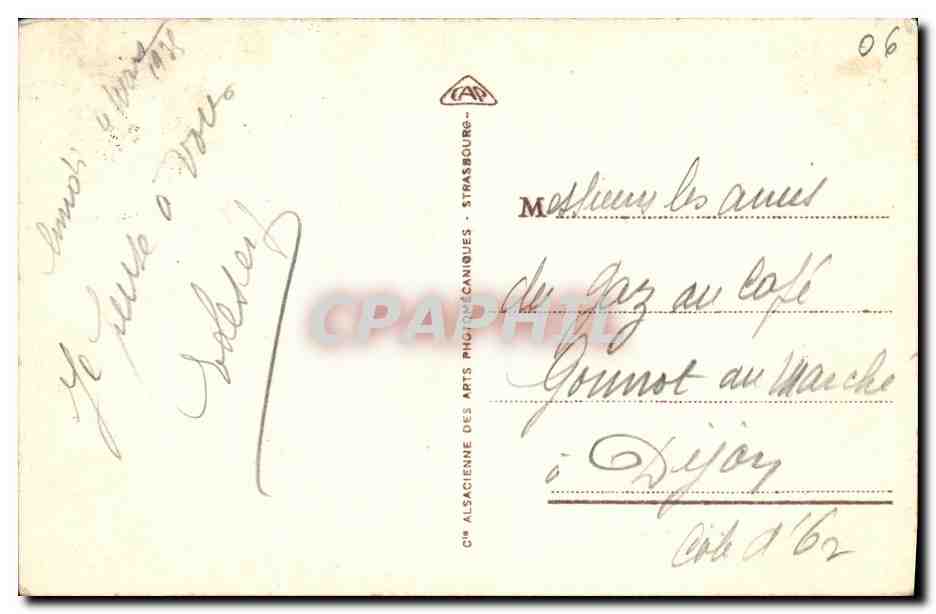 lundi 4 Mars 1935
Je pense à vous
06
CAP
Cie ALSACIENNE DES ARTS PHOTOMÉCANIQUES - STRASBOURG
Messieurs les amis
du gaz au Café
Gounot au Marché
à Dijon
Côte d'Or
CPAPHIL